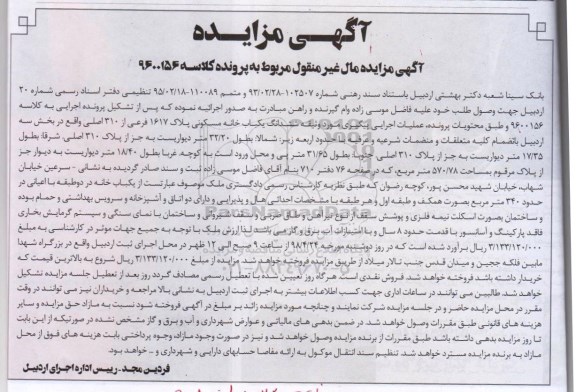 آگهی مزایده
آگهی مزایده مال غیر منقول مربوط به پرونده کلاسه ۹۶۰۰۱۵۶
بانک سینا شعبه دکتر بهشتی اردبیل باستناد سند رهنی شماره ۱۰۲۵۰۷-۹۳/۰۲/۲۸ و متمم ۱۱۰۰۸۹-۹۵/۰۲/۱۸ تنظیمی دفتر اسناد رسمی شماره ۲۰
اردبیل جهت وصول طلب خود علیه فاضل موسی زاده وام گیرنده و راهن مبادرت به صدور اجرائیه نموده که پس از تشکیل پرونده اجرایی به کلاسه
۹۶۰۰۱۵۶ و طبق محتویات پرونده، عملیات اجرایی ششدانگ یکباب خانه مسکونی پلاک ۱۶۱۷ فرعی از ۳۱۰ اصلی واقع در بخش سه
اردبیل بانضمام کلیه متعلقات و منضمات شرعیه و عرفیه با حدود اربعه زیر: شمالا: بطول ۳۲/۲۰ متر دیواریست به جز از پلاک ۳۱۰ اصلی شرقا: بطول
۱۷/۳۵ متر دیواریست به جز از پلاک ۳۱۰ اصلی بطول ۳۱/۶۵ متر پی و محل ورود است به کوچه غربا بطول ۱۸/۴۰ متر دیواریست به دیوار جز
از پلاک مرقوم بمساحت ۵۷۰/۷۸ متر مربع، که در صفحه ۷۶ دفتر ۷۱۰ بنام آقای فاضل موسی زاده ثبت و سند صادر گردیده به نشانی - سرعین خیابان
شهاب، خیابان شهید محسن پور، کوچه رضوان که طبق نظریه کارشناس رسمی دادگستری ملک موصوف عبارتست از یکباب خانه در دوطبقه با اعیانی در
حدود ۳۴۰ متر مربع بصورت همکف و طبقه اول و هر طبقه با مشخصات احداثی هال و پذیرایی و دارای دو اتاق و آشپزخانه و سرویس بهداشتی و حمام بوده
و ساختمان بصورت اسکلت نیمه فلزی و پوشش سقف از نوع تیرچه و ساختمان با نمای سنگی و سیستم گرمایش بخاری
فاقد پارکینگ و آسانسور با قدمت حدود ۸ سال و با امتیازات آب، برق و گاز می باشد لذا ارزش ملک با توجه به جمیع جهات موثر در کارشناسی به مبلغ
۳/۱۳۳/۱۲۰/۰۰۰ ریال برآورد شده است که در روز دوشنبه مورخه ۹۸/۴/۲۴ از ساعت ۹ صبح الی ۱۲ ظهر در محل اجرای ثبت اردبیل واقع در بزرگراه شهدا
مابین فلکه ججین و میدان قدس جنب تالار میلاد از طریق مزایده به فروش گذاشته خواهد شد. مزایده از مبلغ ۳/۱۳۳/۱۲۰/۰۰۰ ریال شروع به بالاترین قیمت که
خریدار داشته باشد فروخته خواهد شد. فروش نقدی است. هرگاه روز تعیین شده با تعطیل رسمی مصادف گردد روز بعد از تعطیل جلسه مزایده تشکیل
خواهد شد. طالبین می توانند در ساعات اداری جهت کسب اطلاعات بیشتر به اجرای ثبت اردبیل به نشانی بالا مراجعه و خریداران نیز می توانند در وقت
مقرر در محل مزایده حاضر و در جلسه مزایده شرکت نمایند و چنانچه مورد مزایده زائد بر مبلغ در آگهی فروخته شود نسبت به مازاد حق مزایده و سایر
هزینه های قانونی طبق مقررات وصول خواهد شد. در ضمن بدهی های مالیاتی و عوارض شهرداری و آب و برق و گاز مشخص نشده در صورتیکه از این بابت
تا روز مزایده بدهی داشته باشد طبق مقررات از برنده مزایده وصول خواهد شد و نیز در صورت وجود مازاد، وجوه پرداختی بابت هزینه های فوق از محل
مازاد به برنده مزایده مسترد خواهد شد. تنظیم سند انتقال موکول به ارائه مفاصا حسابهای دارایی و شهرداری و ... خواهد بود.
فردین مجد - رییس اداره اجرای اردبیل